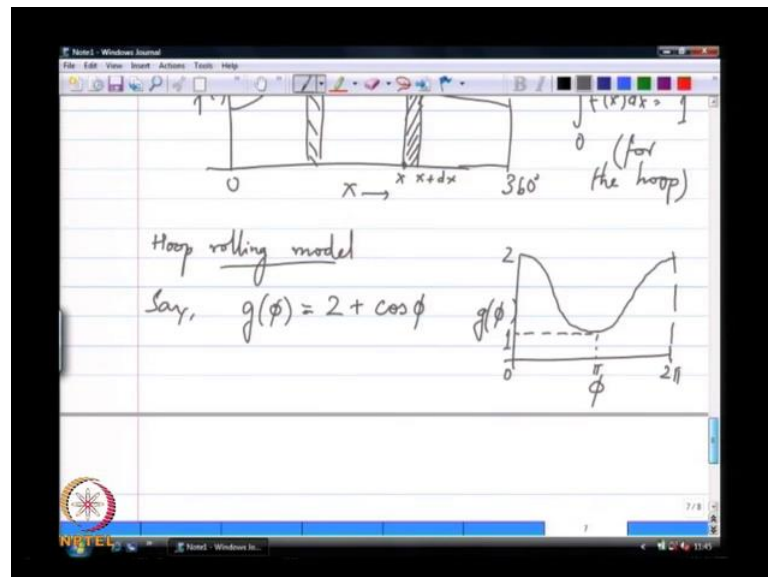 Note1 - Windows Journal
File Edit View Insert Actions Tools Help
B I
∫ f(x)dx = 1
0
0 x → x x+dx 360°
(for
the hoop)
Hoop rolling model
Say, g(φ) = 2 + cosφ
2
g(φ)
1
0 π 2π
φ
7/8
7
NPTEL
Note1 - Windows Jo...
11:45